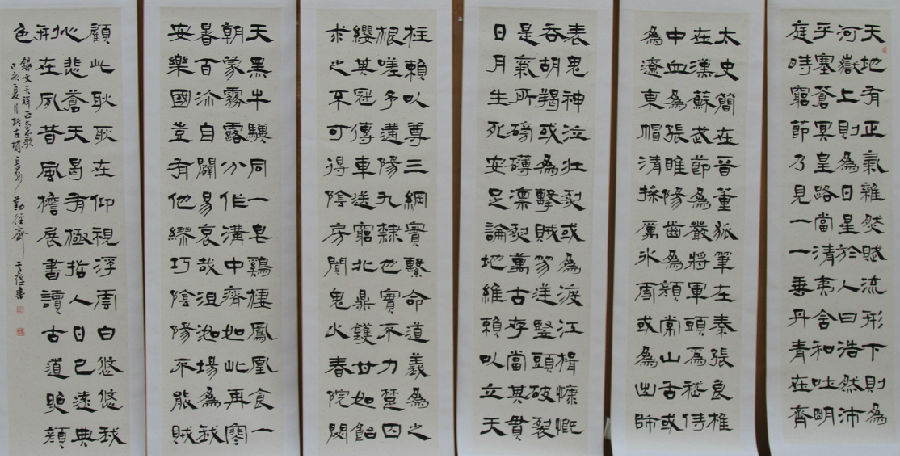 天地有正氣雜然賦流形下則為
河嶽上則為日星於人曰浩然沛
乎塞蒼冥皇路當清夷含和吐明
庭時窮節乃見一一垂丹青在齊
太史簡在晉董狐筆在秦張良椎
在漢蘇武節為嚴將軍頭為嵇侍
中血為張睢陽齒為顏常山舌或
為遼東帽清操厲冰雪或為出師
表鬼神泣壯烈或為渡江楫慷慨
吞胡羯或為擊賊笏逆豎頭破裂
是氣所磅礴凜烈萬古存當其貫
日月生死安足論地維賴以立天
柱賴以尊三綱實繫命道義為之
根嗟予遘陽九隸也實不力楚囚
纓其冠傳車送窮北鼎鑊甘如飴
求之不可得陰房闃鬼火春院閟
天黑牛驥同一皂雞棲鳳凰食一
朝蒙霧露分作溝中瘠如此再寒
暑百沴自闢易哀哉沮洳場為我
安樂國豈有他繆巧陰陽不能賊
顧此耿耿在仰視浮雲白悠悠我
心悲蒼天曷有極哲人日已遠典
刑在夙昔風檐展書讀古道照顏
色
錄文天祥正氣歌